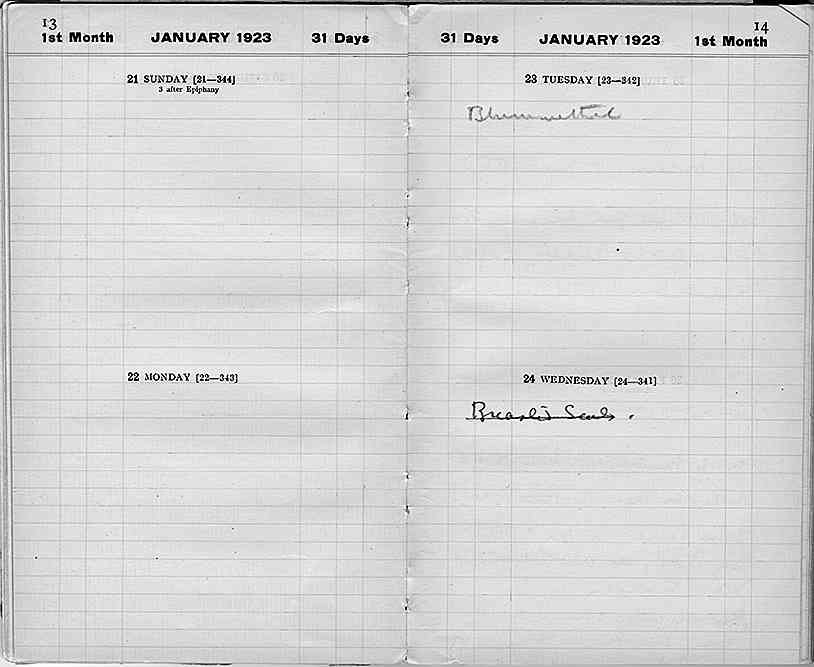 13
1st Month JANUARY 1923 31 Days
21 SUNDAY [21—344]
3 after Epiphany
22 MONDAY [22—343]
14
31 Days JANUARY 1923 1st Month
23 TUESDAY [23—342]
24 WEDNESDAY [24—341]
Breasted's Seals.